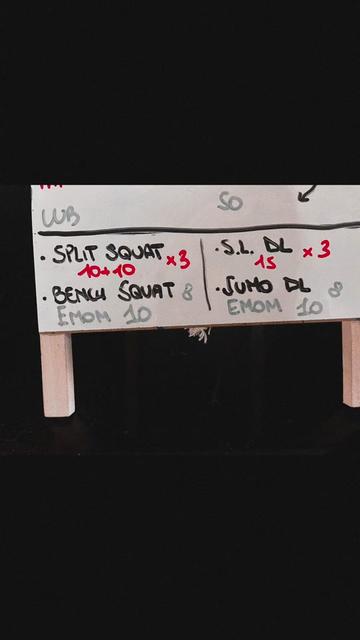 WB
50
• SPLIT SQUAT x3
10+10
• BENCH SQUAT 8
EMOM 10
• S.L. DL x3
15
• SUMO DL 8
EMOM 10